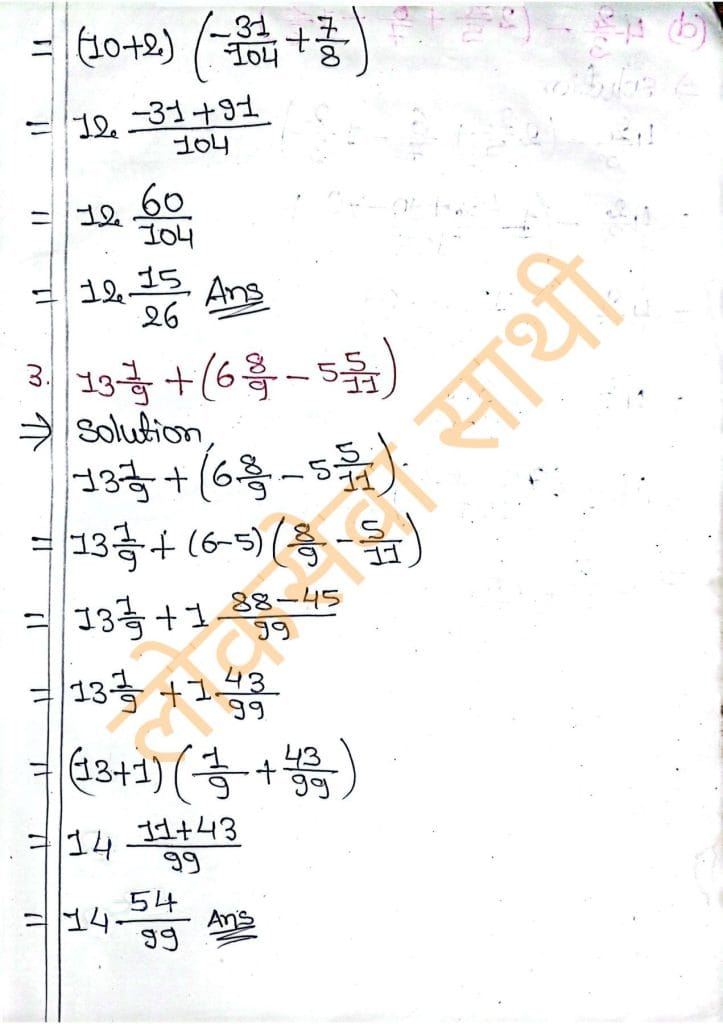 = (10+2) (-31/104 + 7/8)
= 12 (-31+91)/104
= 12 60/104
= 12 15/26 Ans
3. 13 1/9 + (6 8/9 - 5 5/11)
⇒ Solution,
13 1/9 + (6 8/9 - 5 5/11)
= 13 1/9 + (6-5) (8/9 - 5/11)
= 13 1/9 + 1 (88-45)/99
= 13 1/9 + 1 43/99
= (13+1) (1/9 + 43/99)
= 14 (11+43)/99
= 14 54/99 Ans
लोकसेवा साथी